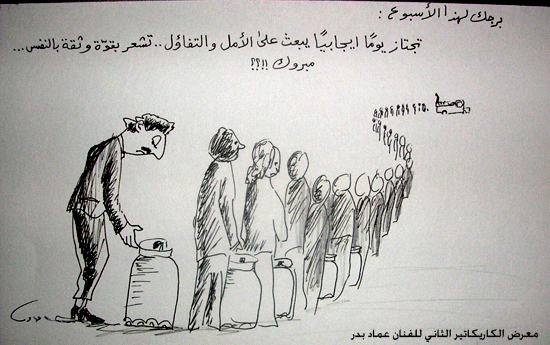 برجك لهذا الأسبوع :
تجتاز يومًا ايجابيًا يبعث على الأمل والتفاؤل .. تشعر بقوّة وثقة بالنفس ...
مبروك !!؟؟
معرض الكاريكاتير الثاني للفنان عماد بدر